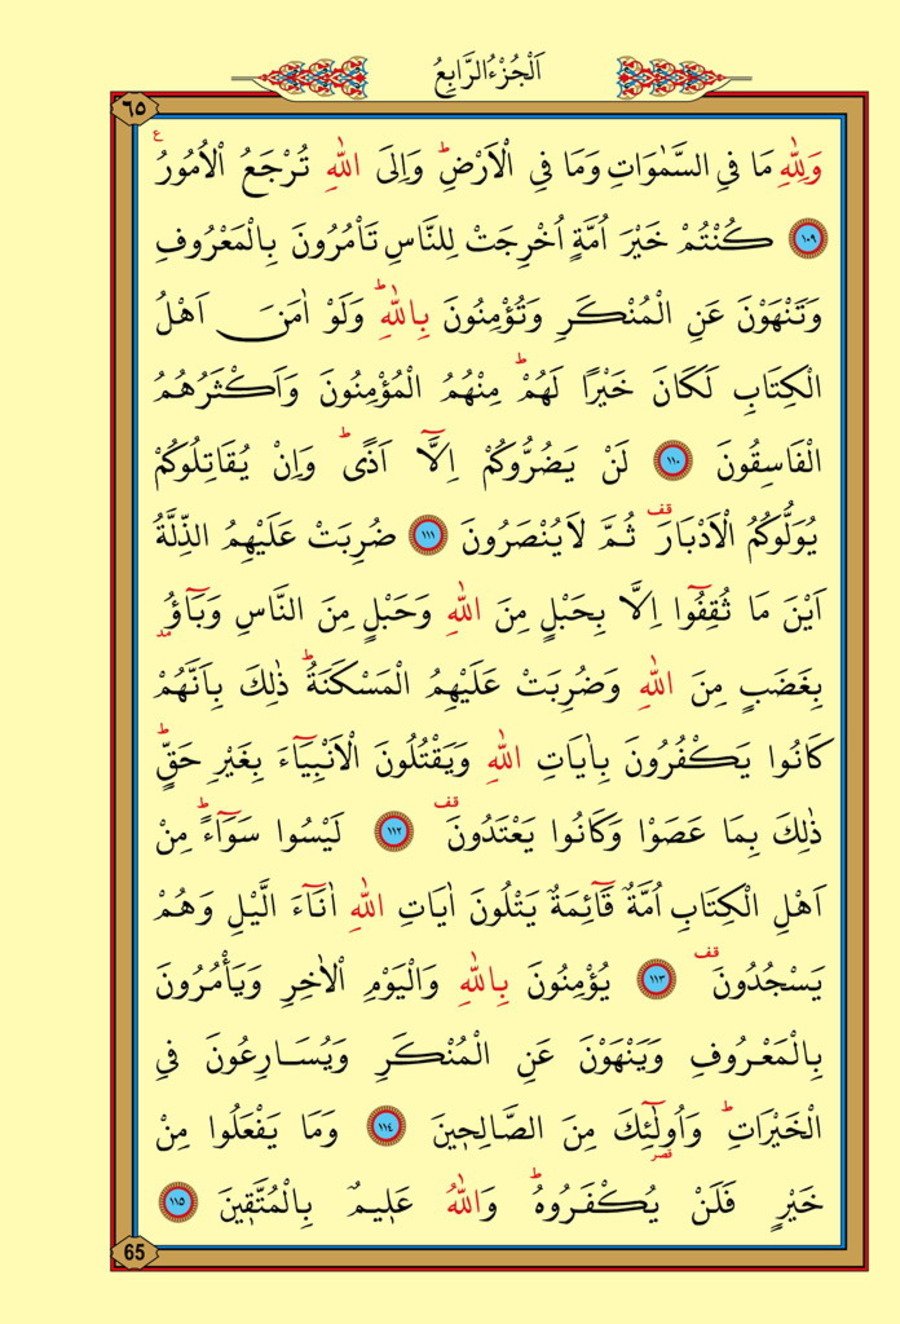 اَلْجُزْءُ الرَّابِعُ
٦٥
وَلِلّٰهِ مَا فِي السَّمٰوَاتِ وَمَا فِي الْاَرْضِۜ وَاِلَى اللّٰهِ تُرْجَعُ الْاُمُورُ ع
﴿١٠٩﴾ كُنْتُمْ خَيْرَ اُمَّةٍ اُخْرِجَتْ لِلنَّاسِ تَاْمُرُونَ بِالْمَعْرُوفِ
وَتَنْهَوْنَ عَنِ الْمُنْكَرِ وَتُؤْمِنُونَ بِاللّٰهِۜ وَلَوْ اٰمَنَ اَهْلُ
الْكِتَابِ لَكَانَ خَيْرًا لَهُمْۜ مِنْهُمُ الْمُؤْمِنُونَ وَاَكْثَرُهُمُ
الْفَاسِقُونَ ﴿١١٠﴾ لَنْ يَضُرُّوكُمْ اِلَّٓا اَذًىۜ وَاِنْ يُقَاتِلُوكُمْ
يُوَلُّوكُمُ الْاَدْبَارَ قف ثُمَّ لَايُنْصَرُونَ ﴿١١١﴾ ضُرِبَتْ عَلَيْهِمُ الذِّلَّةُ
اَيْنَ مَا ثُقِفُٓوا اِلَّا بِحَبْلٍ مِنَ اللّٰهِ وَحَبْلٍ مِنَ النَّاسِ وَبَٓاؤُ۫ مد
بِغَضَبٍ مِنَ اللّٰهِ وَضُرِبَتْ عَلَيْهِمُ الْمَسْكَنَةُۜ ذٰلِكَ بِاَنَّهُمْ
كَانُوا يَكْفُرُونَ بِاٰيَاتِ اللّٰهِ وَيَقْتُلُونَ الْاَنْبِيَٓاءَ بِغَيْرِ حَقٍّۜ
ذٰلِكَ بِمَا عَصَوْا وَكَانُوا يَعْتَدُونَ قف ﴿١١٢﴾ لَيْسُوا سَوَٓاءًۜ مِنْ
اَهْلِ الْكِتَابِ اُمَّةٌ قَٓائِمَةٌ يَتْلُونَ اٰيَاتِ اللّٰهِ اٰنَٓاءَ الَّيْلِ وَهُمْ
يَسْجُدُونَ قف ﴿١١٣﴾ يُؤْمِنُونَ بِاللّٰهِ وَالْيَوْمِ الْاٰخِرِ وَيَأْمُرُونَ
بِالْمَعْرُوفِ وَيَنْهَوْنَ عَنِ الْمُنْكَرِ وَيُسَارِعُونَ فِي
الْخَيْرَاتِۜ وَاُو۬لٰٓئِكَ قصر مِنَ الصَّالِحٖينَ ﴿١١٤﴾ وَمَا يَفْعَلُوا مِنْ
خَيْرٍ فَلَنْ يُكْفَرُوهُۜ وَاللّٰهُ عَلٖيمٌ بِالْمُتَّقٖينَ ﴿١١٥﴾
65